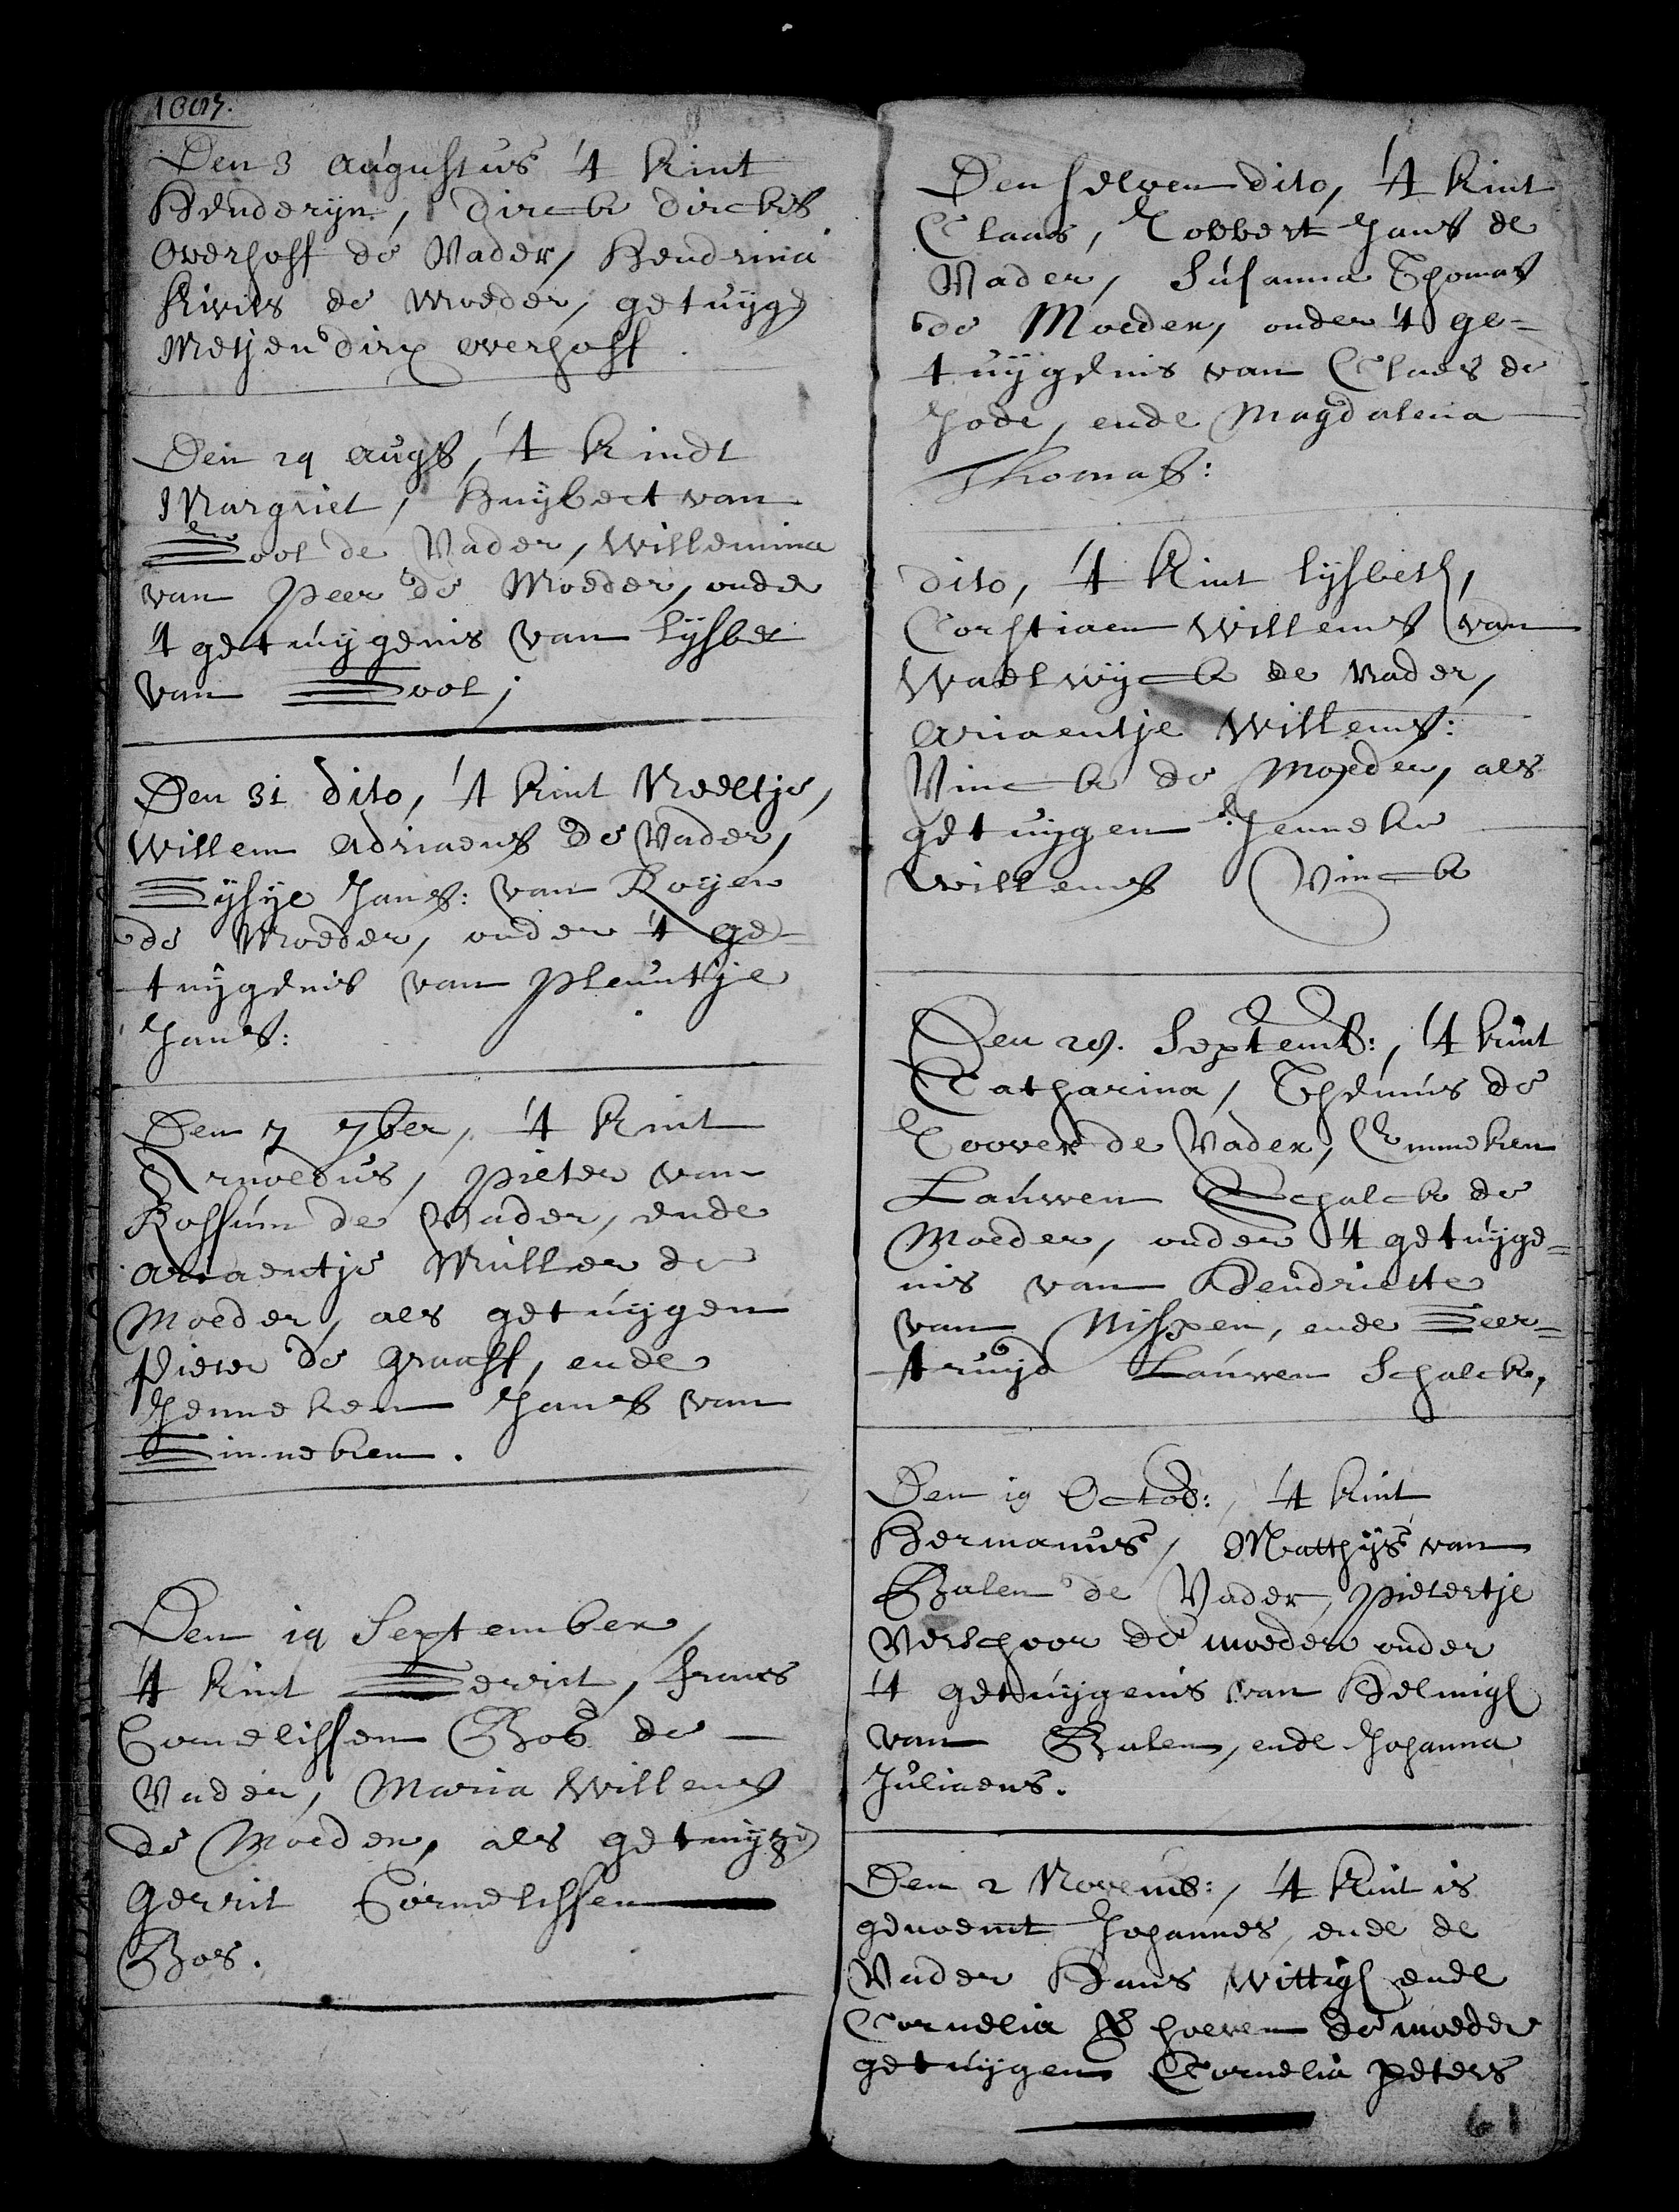 Den 3 Augustus 't kint
Henderyn, dirck dircks
Overhoff de Vader, Hendrina
de Moeder, getuyge
Metjen dirx overhoff.
Den 29 Augs, 't kindt
Margriet, Huybert van
Gool de Vader, Willemina
van Peer de Moeder, onder
't getuygenis van Lysbet
van Gool;
Den 31 dito, 't kint Neeltje,
Willem Adriaens de Vader,
Gysje Jans: van Roijen
de Moeder, onder 't ge-
tuygenis van Pleuntje
Jans:
Den 7 7ber, 't kint
Arnoldus, Pieter van
Rossum de Vader, ende
Ariaentje Muller de
Moeder, als getuygen
Pieter de Graaff, ende
Jenneken Jans van
Ginneken.
Den 19 September,
't kint Gerrit, frans
Cornelissen Bos de
Vader, Maria Willems
de Moeder, als getuyge
Gerrit Cornelissen
Bos.
Den selven dito, 't kint
Claas, Cobbert Jans de
Vader, Susanna Thomas
de Moeder, onder 't ge-
tuygenis van Claes de
Jode, ende Magdalena
Thomas:
dito, 't kint lysbeth,
Corstiaen Willems van
Waelwyck de Vader,
Ariaentje Willems:
Vinck de Moeder, als
getuygen Jenneke
Willems Vinck
Den 28. Septemb:, 't kint
Catharina, Theunis de
Coover de Vader, Emmeken
Lauwen Schalck de
Moeder, onder 't getuyge-
nis van Hendriette
van Nispen, ende Geer-
truyd Lauwen Schalck,
Den 19 Octob:, 't kint
Hermanus, Matthys van
Balen de Vader, Pietertje
Verschoor de moeder onder
't getuygenis van Helmigh
van Balen, ende Johanna
Juliaens.
Den 2 Novemb:, 't kint is
genoemt Johannes, ende de
Vader Hans Wittigh ende
Cornelia de moeder
getuygen Cornelia Peters
61